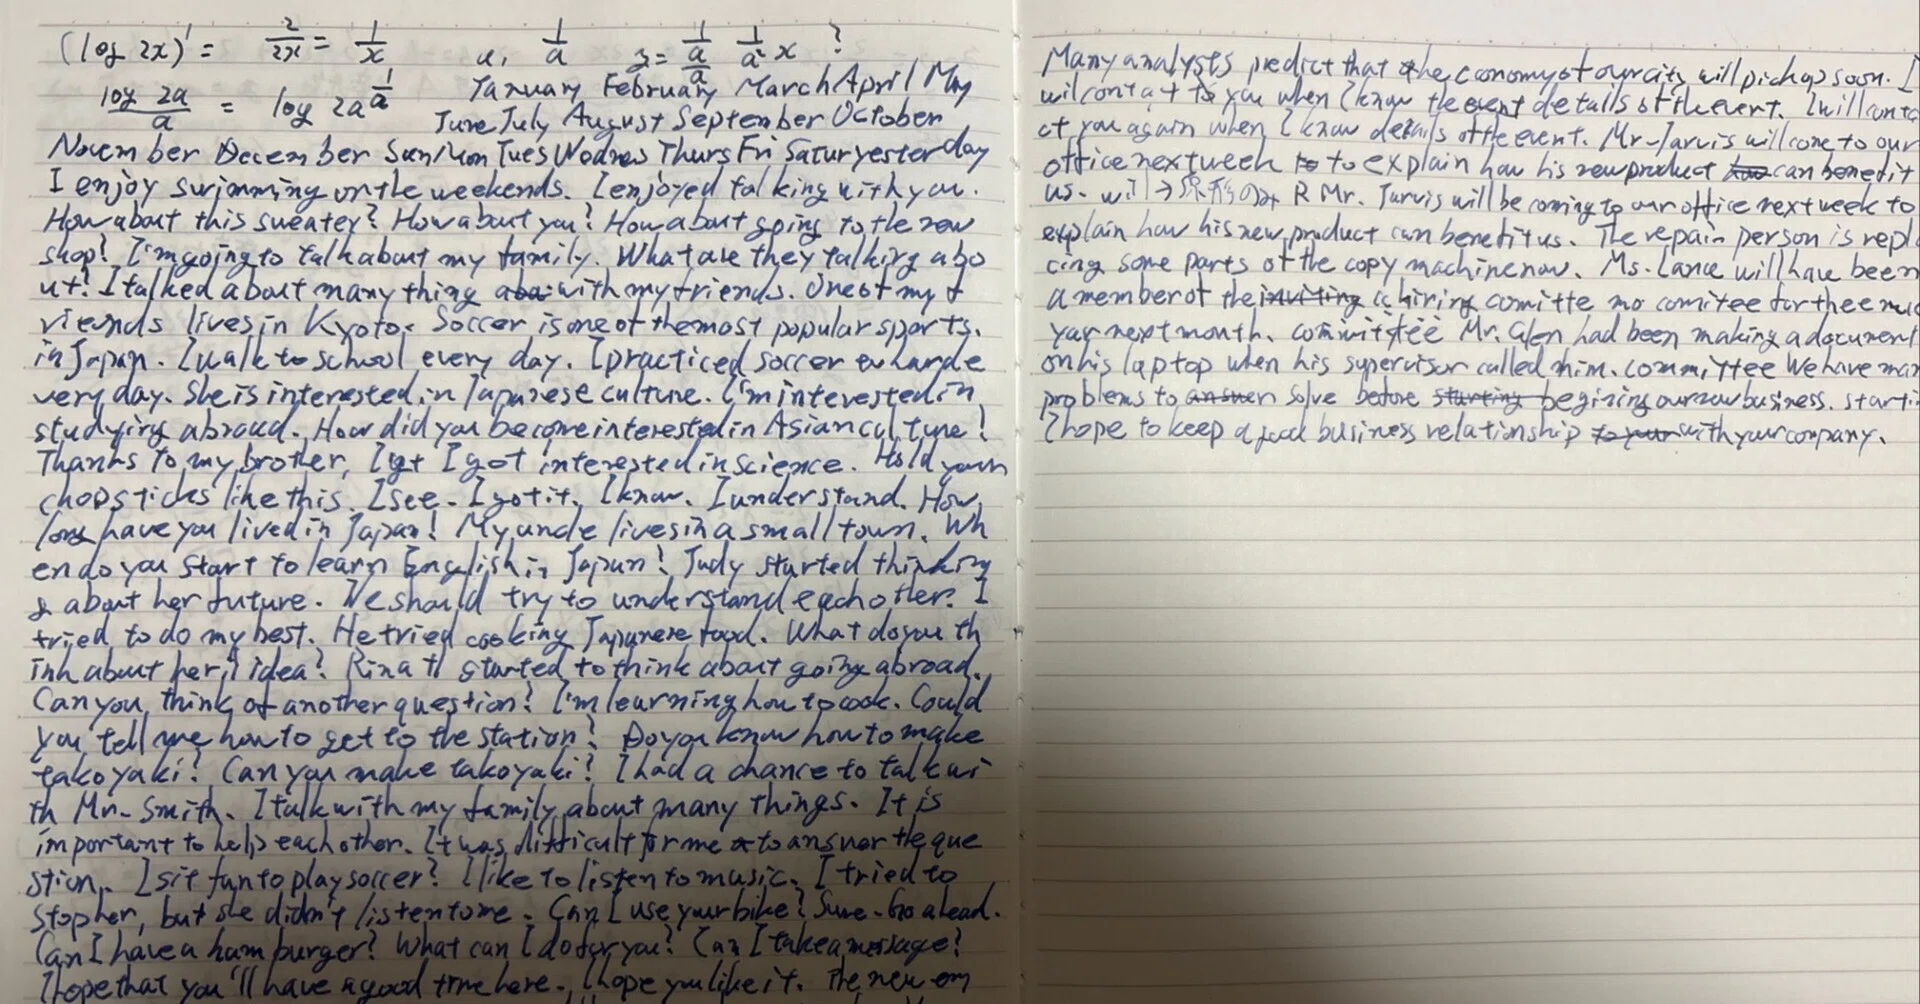 (log 2x)' = 2/2x = 1/x a, 1/a y = 1/a/a 1/a² x ?
log 2a/a = log 2a^1/a January February March April May
June July August September October
November December Sun/Mon Tues Wednes Thurs Fri Satur yesterday
I enjoy swimming on the weekends. I enjoyed talking with you.
How about this sweatey? How about you? How about going to the new
shop? I'm going to talk about my family. What are they talking abo
ut? I talked about many thing with my friends. One of my f
riends lives in Kyoto. Soccer is one of the most popular sports.
in Japan. I walk to school every day. I practiced soccer hard e
very day. She is interested in Japanese culture. I'm interested in
studying abroad. How did you become interested in Asian culture?
Thanks to my brother, I get I got interested in science. Hold your
chopsticks like this. I see. I got it. I know. I understand. How
long have you lived in Japan? My uncle lives in a small town. Wh
en do you start to learn English in Japan? Judy started thinking
about her future. We should try to understand each other. I
tried to do my best. He tried cooking Japanese food. What do you th
ink about her idea? Rina started to think about going abroad.
Can you think of another question? I'm learning how to cook. Could
you tell me how to get to the station? Do you know how to make
takoyaki? Can you make takoyaki? I had a chance to talk wi
th Mr. Smith. I talk with my family about many things. It is
important to help each other. It was difficult for me to answer the que
stion. Is it fun to play soccer? I like to listen to music. I tried to
stop her, but she didn't listen to me. Can I use your bike? Sure. Go ahead.
Can I have a hamburger? What can I do for you? Can I take a message?
I hope that you'll have a good time here. I hope you like it. The new em
Many analysts predict that the economy of our city will pick up soon. I
wil contact to you when I know the event details of the event. I will conta
ct you again when I know details of the event. Mr. Jarvis will come to our
office next week to to explain how his new product can benefit
us. will → 原形のみ R Mr. Jarvis will be coming to our office next week to
explain how his new product can benefit us. The repair person is repla
cing some parts of the copy machine now. Ms. Lance will have been
a member of the inviting hiring comitte mo comitee for three
year next month. committee Mr. Glen had been making a document
on his laptop when his supervisor called him. committee We have man
problems to answer solve before starting begining our new business. starti
I hope to keep a good business relationship to your with your company.